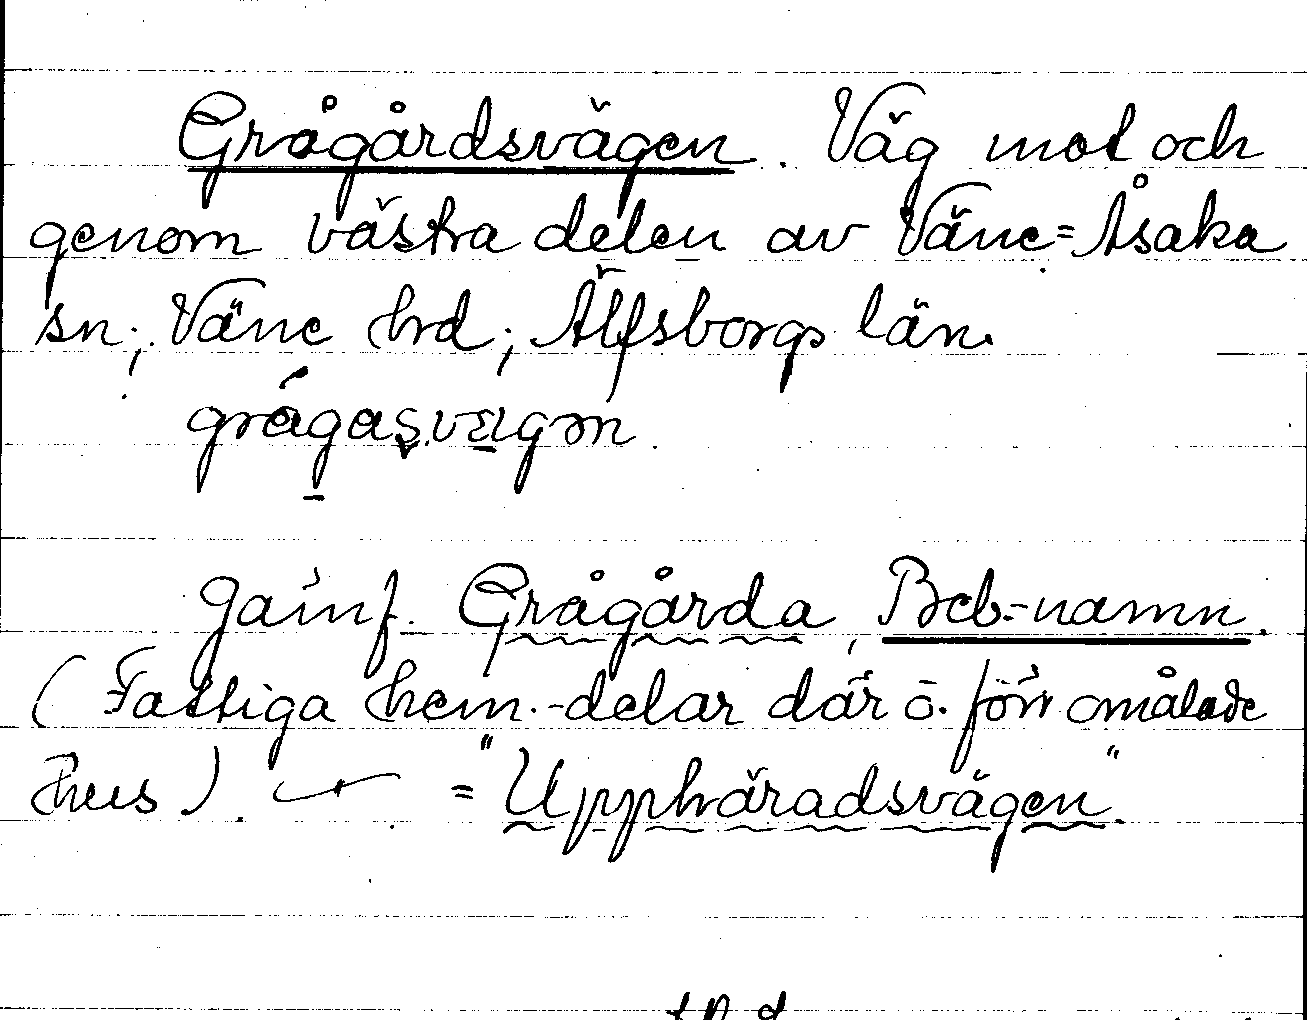 Grågårdsvägen. Väg mot och
genom västra delen av Väne=Åsaka
sn; Väne hrd; Älfsborgs län.
Jämf. Grågårda, Beb.-namn.
(Fattiga hem.-delar där o. förr omålade
hus). = "Upphäradsvägen".